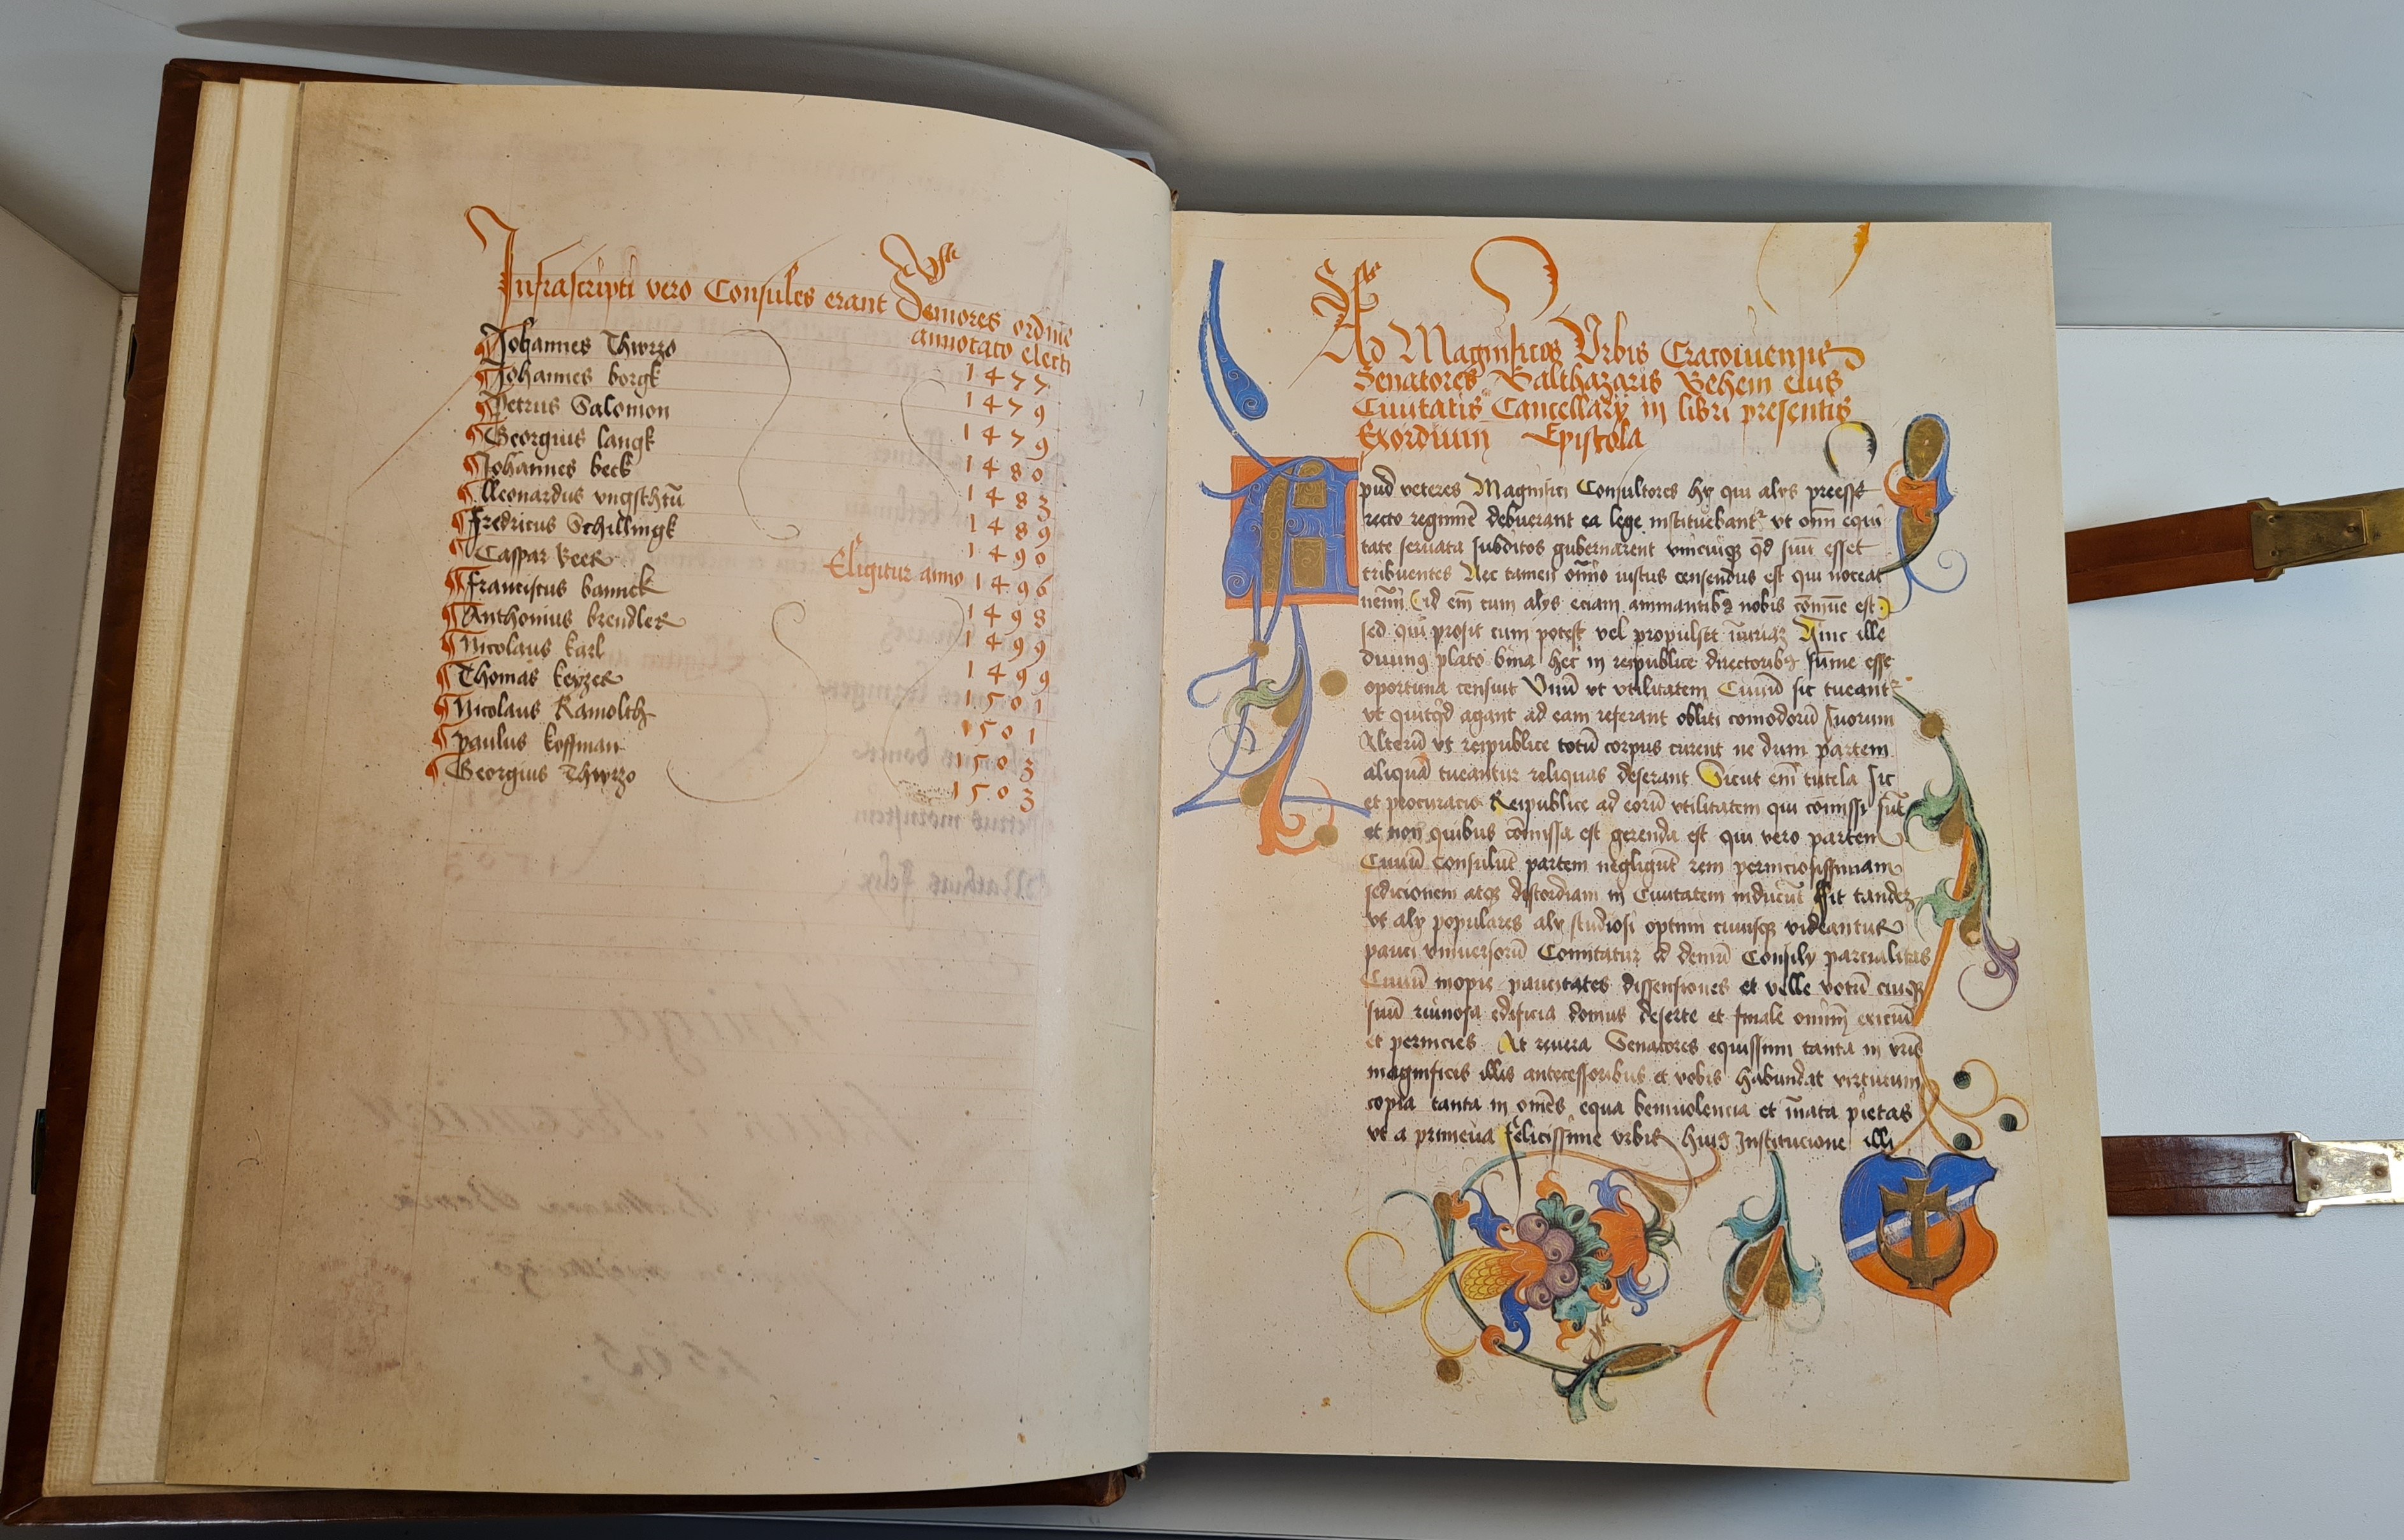 Infrascripti vero Consules erant Seniores ordine
annotato electi
Johannes Thwrzo 1477
Johannes borgk 1479
Petrus Salomon 1479
Georgius langk 1480
Johannes beck 1483
lleonardus vngsthtū 1489
fredricus Schillingk 1490
Caspar Beer Eligitur anno 1496
franciscus bannck 1498
Anthonius brendler 1499
Nicolaus karl 1499
Thomas keyzer 1501
Nicolaus Ramolth 1501
paulus koffman 1503
Georgius Thwrzo 1503
Ad Magnificos Vrbis Cracouiensis
Senatores Balthazaris Behem eius
Ciuitatis Cancellarij in libri presentis
Exordium Epistola
Apud veteres Magnifici Consultores hy qui alys preesse
recto regimē debuerant ea lege instituebant vt omī equi
tate seruata subditos gubernarent vnicuiqз qd suū esset
tribuentes Nec tamen om̄no iustus censendus est qui noceat
nemī Id em̄ cum alys eciam ammantibꝫ nobis cōmūe est
sed qui prosit cum potest vel propulset Hinc ille
diuinꝰ plato hec in reipublice directoribꝫ sūme esse
oportuna censuit Vnū vt vtilitatem Ciuiū sic tueant
vt quitqd agant ad eam referant obliti comodorū suorum
Alterū vt reipublice totū corpus curent ne dum partem
aliquā tueantur reliquas deserant Sicut em̄ tutela sic
et procuracio Reipublice ad eorū vtilitatem qui cōmissi sūt
et non quibus cōmissa est gerenda est qui vero partem
Ciuiū consulūt partem negligūt rem perniciosissimam
sedicionem atqз discordiam in Ciuitatem inducūt fit tandeз
vt aly populares aly studiosi optimi cuiusqз videantur
pauci vniuersorū Comitatur id demū Consily parcialitas
Ciuiū inopie paucitates dissensiones et velle votū cuiqз
suū ruinosa edificia domus deserte et finale omniū exiciū
et pernicies At reuera Senatores equissimi tanta in vrīs
magnificis illis antecessoribus et vobis habundat virtutum
copia tanta in omēs equa beniuolencia et īnata pietas
vt a primeua felicissime vrbis huiꝰ Institucione illi